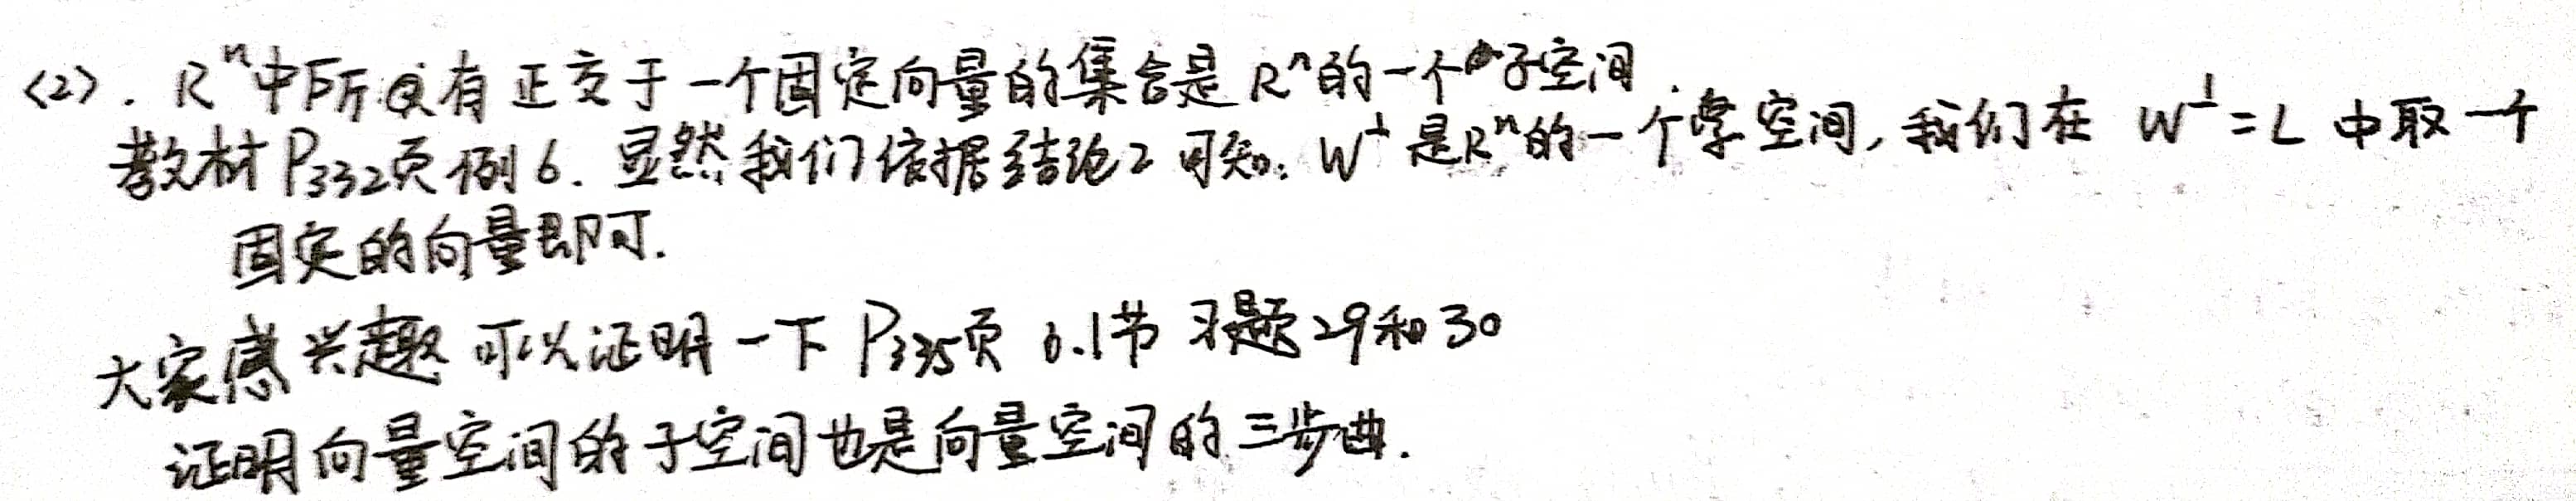 (2). Rⁿ中所有正交于一个固定向量的集合是Rⁿ的一个子空间.
教材P332页例6. 显然我们依据结论2可知: W⊥是Rⁿ的一个空间, 我们在 W⊥=L 中取一个
固定的向量即可.
大家感兴趣可以证明一下 P335页 6.1节 习题29和30
证明向量空间的子空间也是向量空间的三步曲.